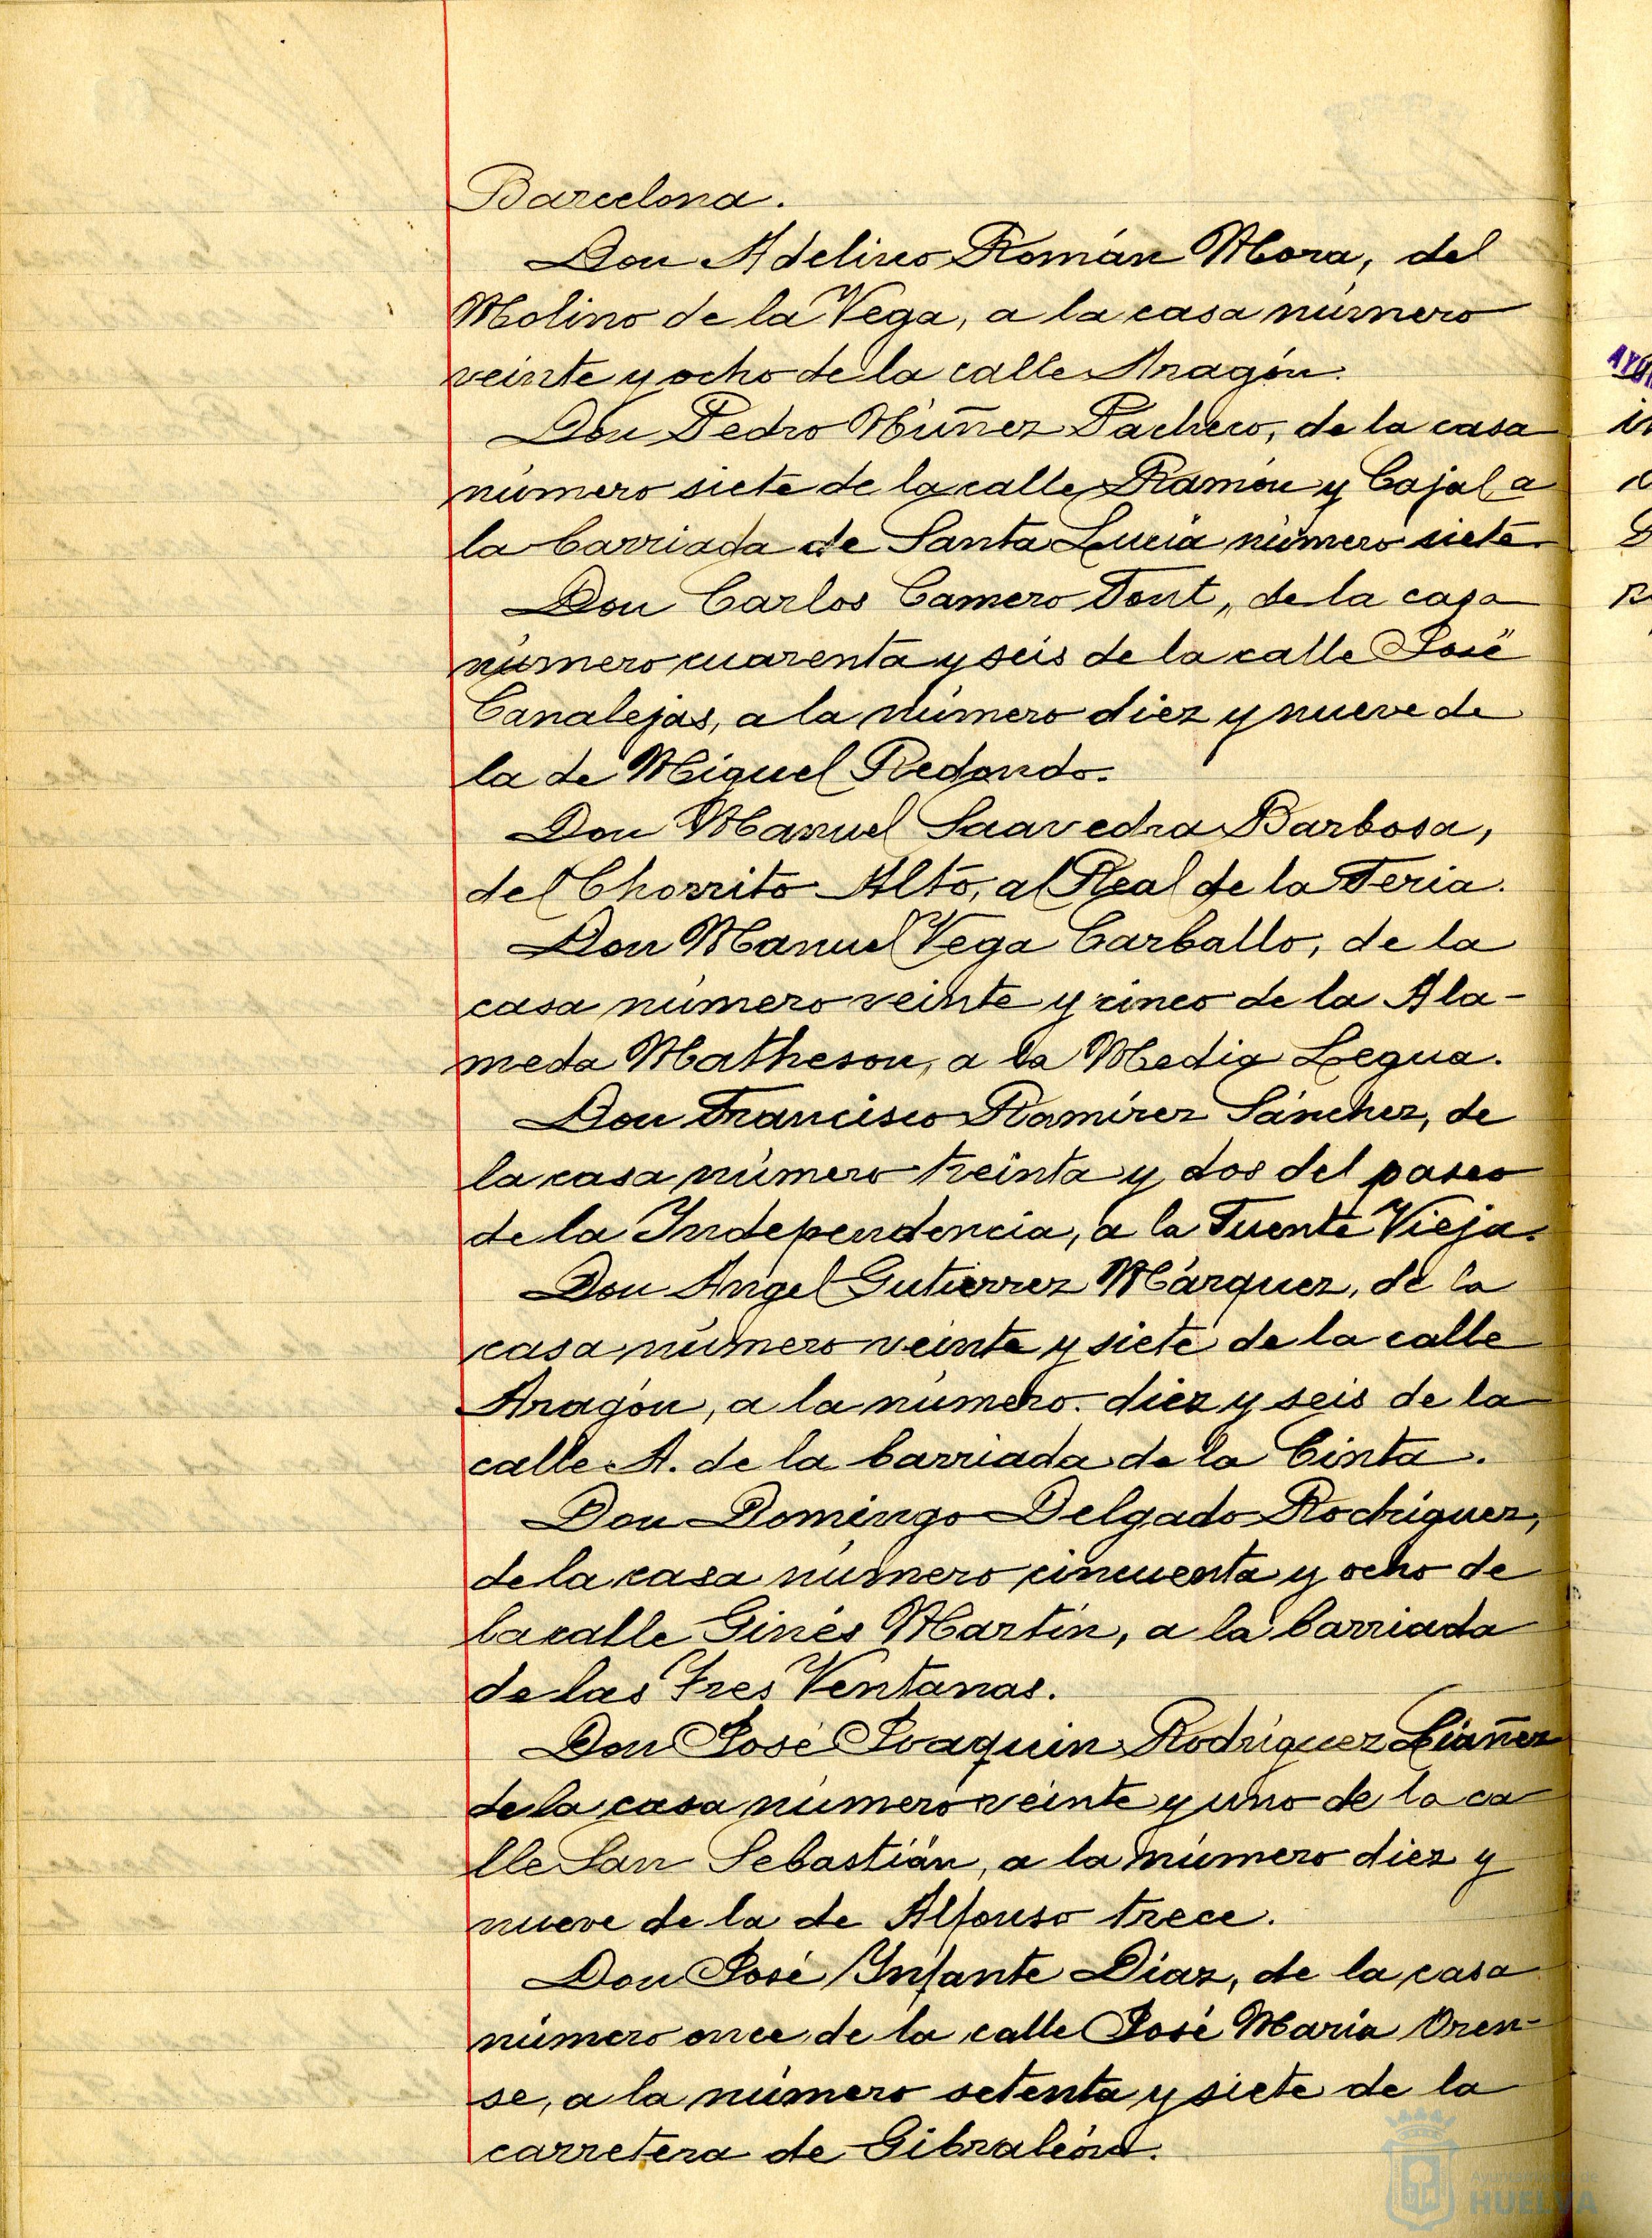 Barcelona.
Don Adelino Román Mora, del
Molino de la Vega, a la casa número
veinte y ocho de la calle Aragón.
Don Pedro Núñez Pacheco, de la casa
número siete de la calle Ramón y Cajal a
la barriada de Santa Lucía número siete.
Don Carlos Camero Font, de la casa
número cuarenta y seis de la calle José
Canalejas, a la número diez y nueve de
la de Miguel Redondo.
Don Manuel Saavedra Barbosa,
del Chorrito Alto, al Real de la Feria.
Don Manuel Vega Carballo, de la
casa número veinte y cinco de la Ala-
meda Matheson, a la Media Legua.
Don Francisco Ramírez Sánchez, de
la casa número treinta y dos del paseo
de la Independencia, a la Fuente Vieja.
Don Angel Gutierrez Márquez, de la
casa número veinte y siete de la calle
Aragón, a la número diez y seis de la
calle A. de la barriada de la Cinta.
Don Domingo Delgado Rodríguez,
de la casa número cincuenta y ocho de
la calle Ginés Martín, a la barriada
de las Tres Ventanas.
Don José Joaquín Rodríguez Liáñez
de la casa número veinte y uno de la ca
lle San Sebastián, a la número diez y
nueve de la de Alfonso trece.
Don José Infante Díaz, de la casa
número once de la calle José María Oren-
se, a la número setenta y siete de la
carretera de Gibraleón.
HUELVA